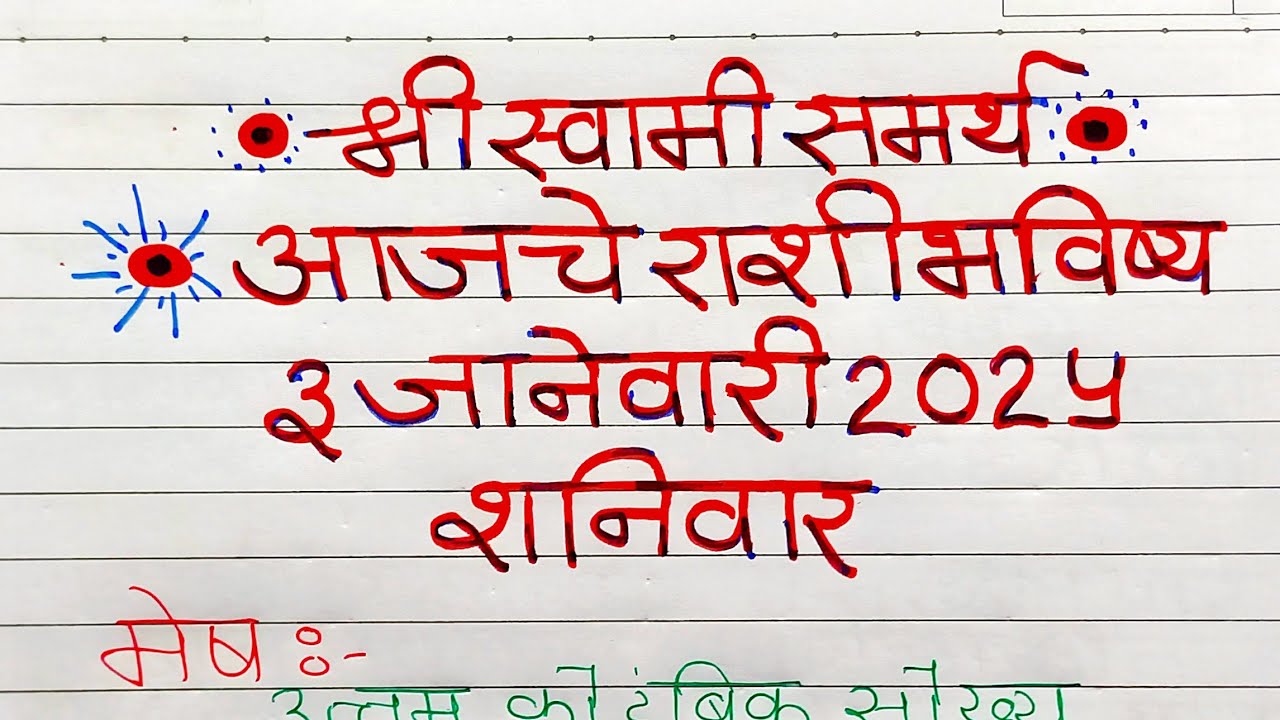 श्री स्वामी समर्थ
आजचे राशीभविष्य
३ जानेवारी 202५
शनिवार
मेष :-
उत्तम कौटुंबिक सौख्य